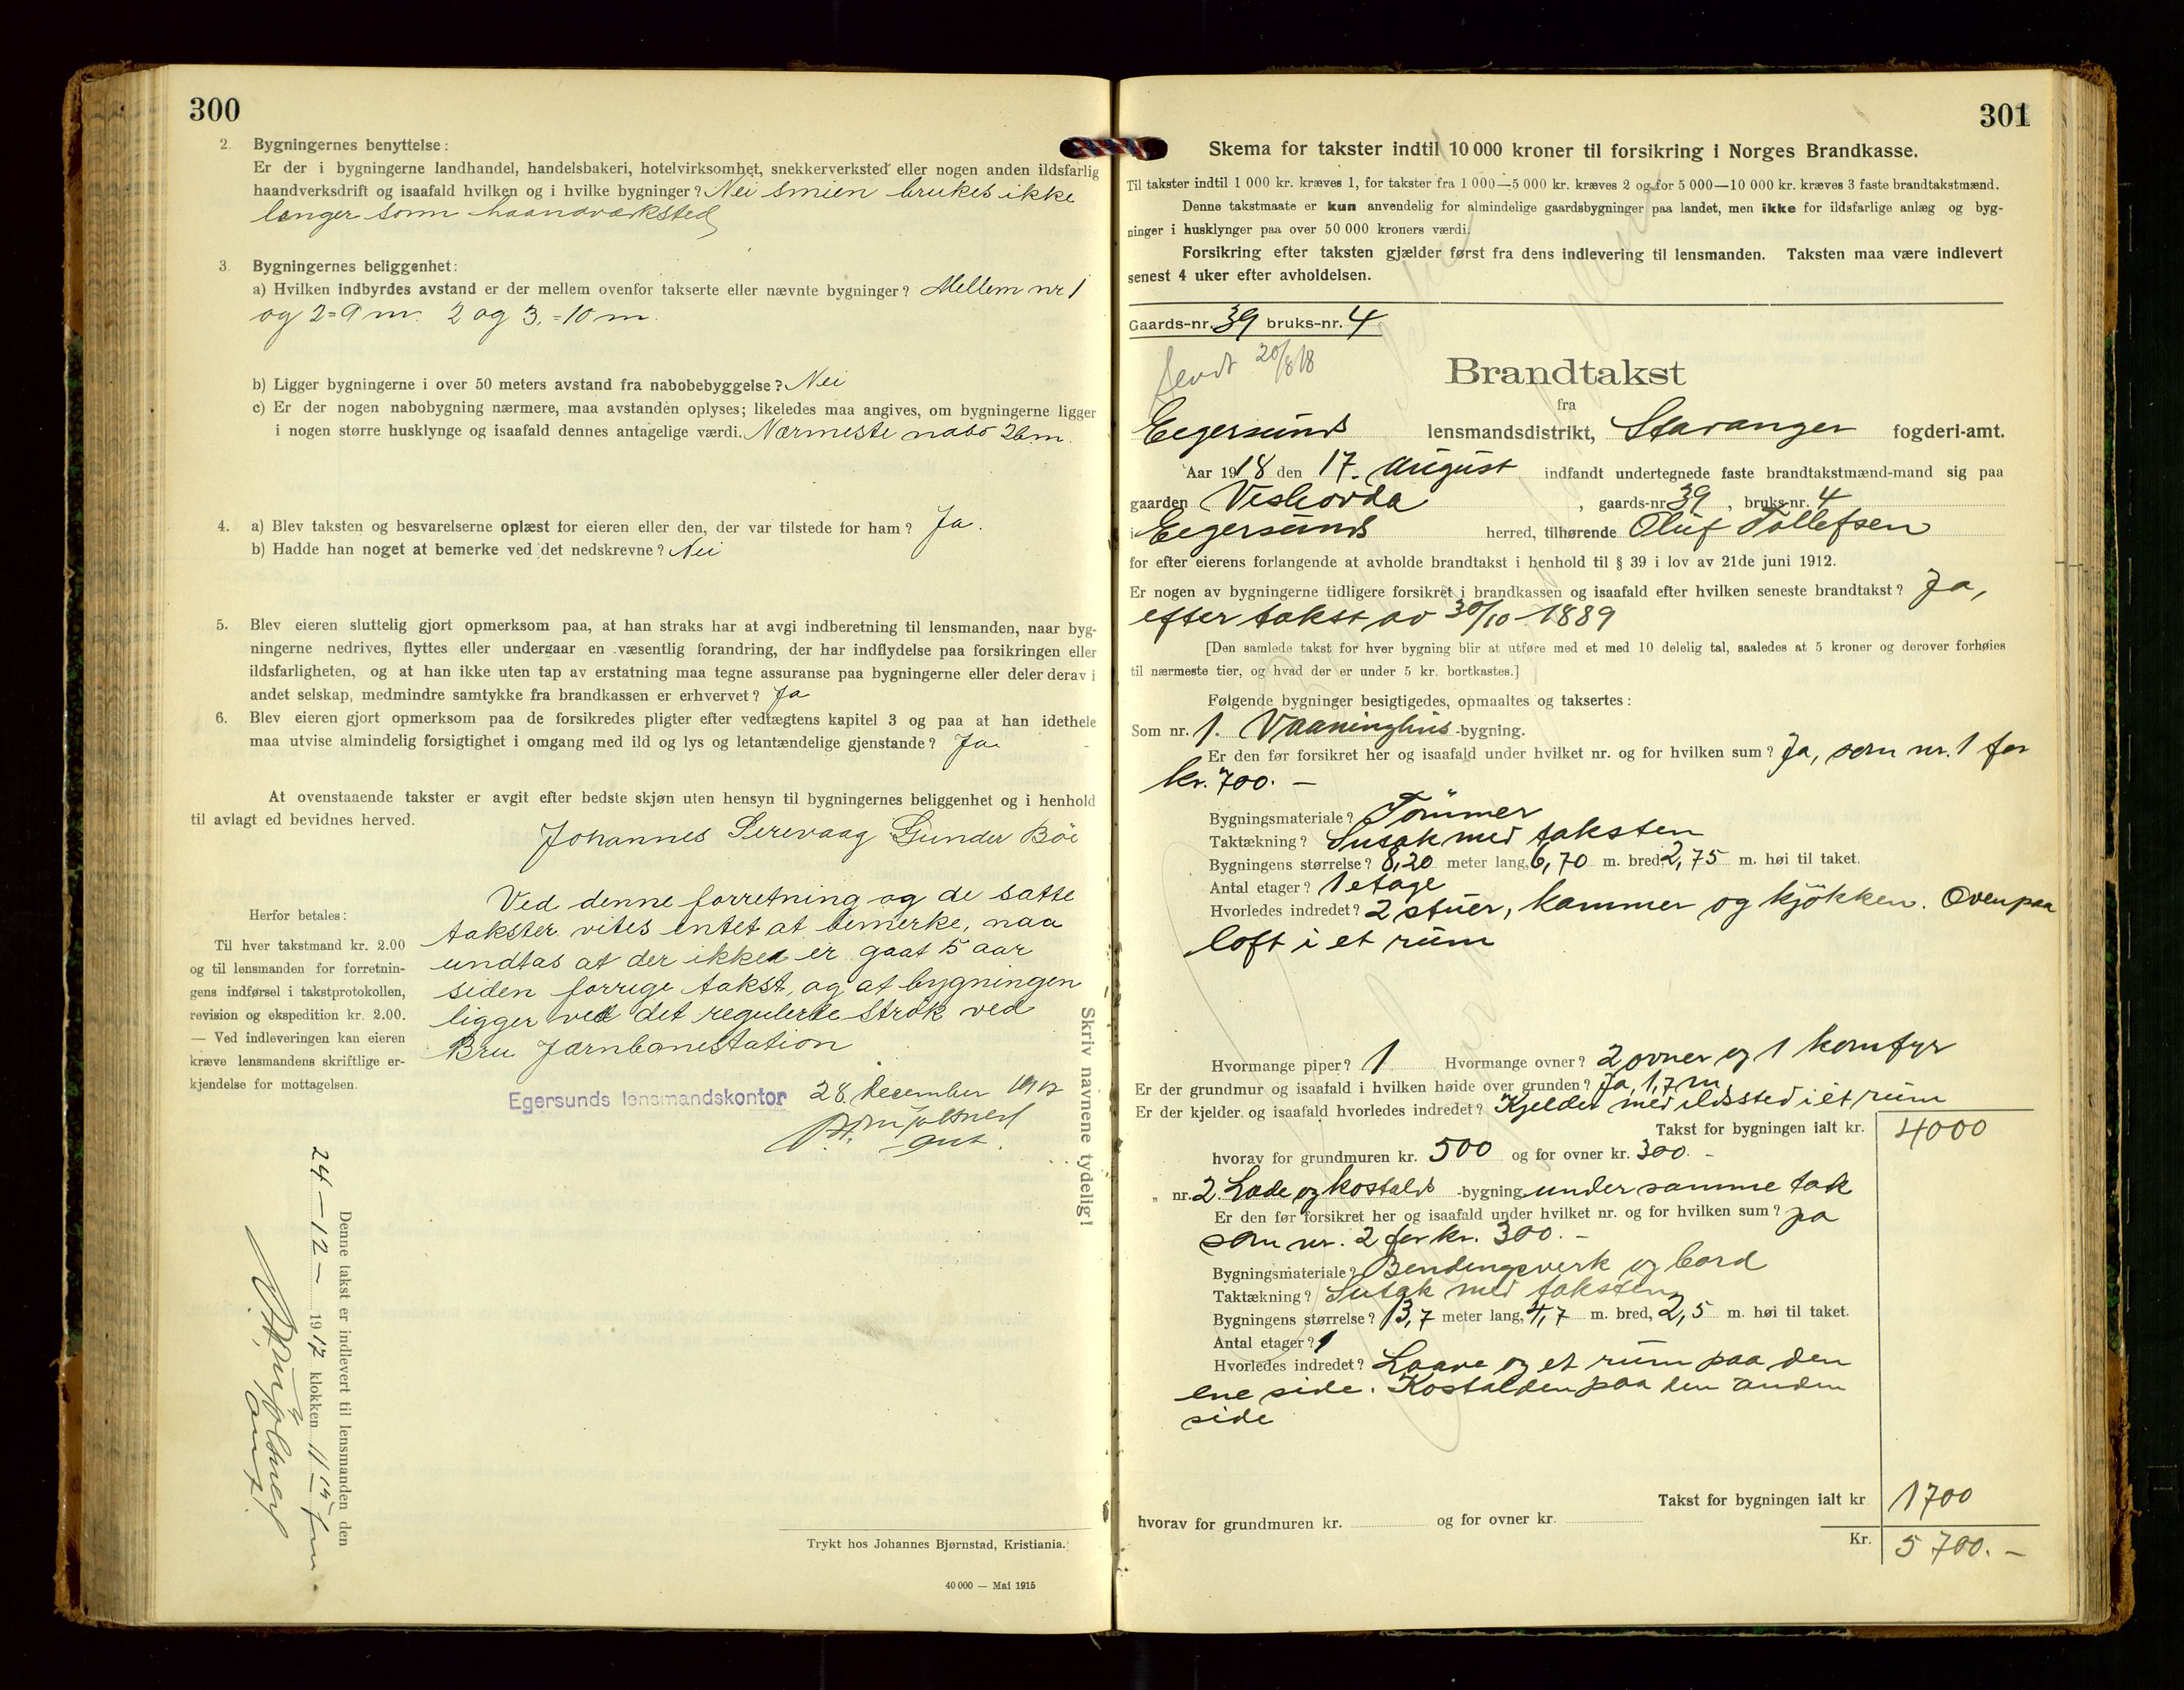 300
2. Bygningernes benyttelse:
Er der i bygningerne landhandel, handelsbakeri, hotelvirksomhet, snekkerverksted eller nogen anden ildsfarlig
haandverksdrift og isaafald hvilken og i hvilke bygninger? Nei smien brukes ikke
længer som haandværksted
3. Bygningernes beliggenhet:
a) Hvilken indbyrdes avstand er der mellem ovenfor takserte eller nævnte bygninger? Mellem nr 1
og 2 = 9 m. 2 og 3. = 10 m.
b) Ligger bygningerne i over 50 meters avstand fra nabobebyggelse? Nei
c) Er der nogen nabobygning nærmere, maa avstanden oplyses; likeledes maa angives, om bygningerne ligger
i nogen større husklynge og isaafald dennes antagelige værdi. Nærmeste nabo 26 m.
4. a) Blev taksten og besvarelserne oplæst for eieren eller den, der var tilstede for ham? Ja.
b) Hadde han noget at bemerke ved det nedskrevne? Nei
5. Blev eieren sluttelig gjort opmerksom paa, at han straks har at avgi indberetning til lensmanden, naar byg-
ningerne nedrives, flyttes eller undergaar en væsentlig forandring, der har indflydelse paa forsikringen eller
ildsfarligheten, og at han ikke uten tap av erstatning maa tegne assuranse paa bygningerne eller deler derav i
andet selskap, medmindre samtykke fra brandkassen er erhvervet? Ja
6. Blev eieren gjort opmerksom paa de forsikredes pligter efter vedtægtens kapitel 3 og paa at han idethele
maa utvise almindelig forsigtighet i omgang med ild og lys og letantændelige gjenstande? Ja
At ovenstaaende takster er avgit efter bedste skjøn uten hensyn til bygningernes beliggenhet og i henhold
til avlagt ed bevidnes herved.
Johannes Serevaag Gunder Böe
Ved denne forretning og de satte
takster vites intet at bemerke, naa
undtas at der ikke er gaat 5 aar
siden forrige takst, og at bygningen
ligger ved det regulerte Strøk ved
Bru Jærnbanestation
Egersunds lensmandskontor 28. December 1917
aut.
Herfor betales:
Til hver takstmand kr. 2.00
og til lensmanden for forretnin-
gens indførsel i takstprotokollen,
revision og ekspedition kr. 2.00.
— Ved indleveringen kan eieren
kræve lensmandens skriftlige er-
kjendelse for mottagelsen.
Skriv navnene tydelig!
Denne takst er indlevert til lensmanden den
24 - 12 - 1917 klokken 11 15 fm.
aut.
Trykt hos Johannes Bjørnstad, Kristiania.
40 000 — Mai 1915
301
Skema for takster indtil 10 000 kroner til forsikring i Norges Brandkasse.
Til takster indtil 1 000 kr. kræves 1, for takster fra 1 000—5 000 kr. kræves 2 og for 5 000—10 000 kr. kræves 3 faste brandtakstmænd.
Denne takstmaate er kun anvendelig for almindelige gaardsbygninger paa landet, men ikke for ildsfarlige anlæg og byg-
ninger i husklynger paa over 50 000 kroners værdi.
Forsikring efter taksten gjælder først fra dens indlevering til lensmanden. Taksten maa være indlevert
senest 4 uker efter avholdelsen.
Gaards-nr. 39 bruks-nr. 4
sendt 20/8 18
Brandtakst
fra
Eegersund lensmandsdistrikt, Stavanger fogderi-amt.
Aar 1918 den 17. august indfandt undertegnede faste brandtakstmænd-mand sig paa
gaarden Veshovda, gaards-nr. 39, bruks-nr. 4
i Eegersund herred, tilhørende Oluf Tollefsen
for efter eierens forlangende at avholde brandtakst i henhold til § 39 i lov av 21de juni 1912.
Er nogen av bygningerne tidligere forsikret i brandkassen og isaafald efter hvilken seneste brandtakst? Ja,
efter takst av 30/10 - 1889
[Den samlede takst for hver bygning blir at utføre med et med 10 delelig tal, saaledes at 5 kroner og derover forhøies
til nærmeste tier, og hvad der er under 5 kr. bortkastes.]
Følgende bygninger besigtigedes, opmaaltes og taksertes:
Som nr. 1. Vaaninghus -bygning.
Er den før forsikret her og isaafald under hvilket nr. og for hvilken sum? Ja, som nr. 1 for
kr. 700. -
Bygningsmateriale? Tömmer
Taktækning? Sutak med taksten
Bygningens størrelse? 8,20 meter lang, 6,70 m. bred 2,75 m. høi til taket.
Antal etager? 1 etage
Hvorledes indredet? 2 stuer, kammer og kjökken. Ovenpaa
loft i et rum
Hvormange piper? 1 Hvormange ovner? 2 ovner og 1 komfyr
Er der grundmur og isaafald i hvilken høide over grunden? Ja, 1,7 m
Er der kjelder og isaafald hvorledes indredet? Kjelder med ildssted i et rum
Takst for bygningen ialt kr. 4000
hvorav for grundmuren kr. 500 og for ovner kr. 300. -
„ nr. 2. Lade og kostald -bygning under samme tak
Er den før forsikret her og isaafald under hvilket nr. og for hvilken sum? Ja
som nr. 2 for kr. 300. -
Bygningsmateriale? Bendingsverk og bord
Taktækning? Sutak med taksten
Bygningens størrelse? 13,7 meter lang, 4,7 m. bred, 2,5 m. høi til taket.
Antal etager? 1
Hvorledes indredet? Laave og et rum paa den
ene side. Kostalden paa den anden
side
Takst for bygningen ialt kr 1700
hvorav for grundmuren kr. og for ovner kr.
Kr. 5700. -